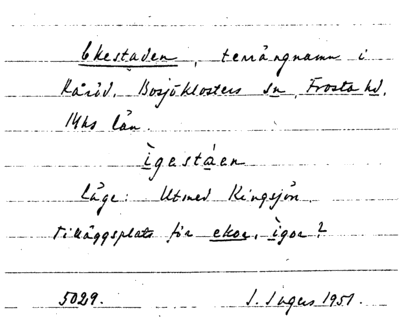 Ekestaden, terrängnamn i
Bosjöklosters sn, Frosta hd,
Mhs län.
ìgastáen
Läge: Utmed Ringsjön.
Tilläggsplats för ekor, ìgor?
5029. 1951.